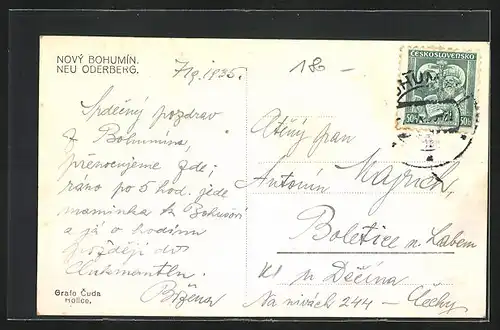 NOVÝ BOHUMÍN.
NEU ODERBERG.
7/9.1935.
18 –
ČESKOSLOVENSKO
50h 50h
Srdečný pozdrav
z Bohumína,
přenocujeme zde;
ráno po 5 hod. jede
maminka
a já o hodinu
později do
Božena
Ctěný pan
Antonín Majrich,
Boletice n. Labem
u Děčína
Na nivách 244 – Čechy
Grafo Čuda
Holice.